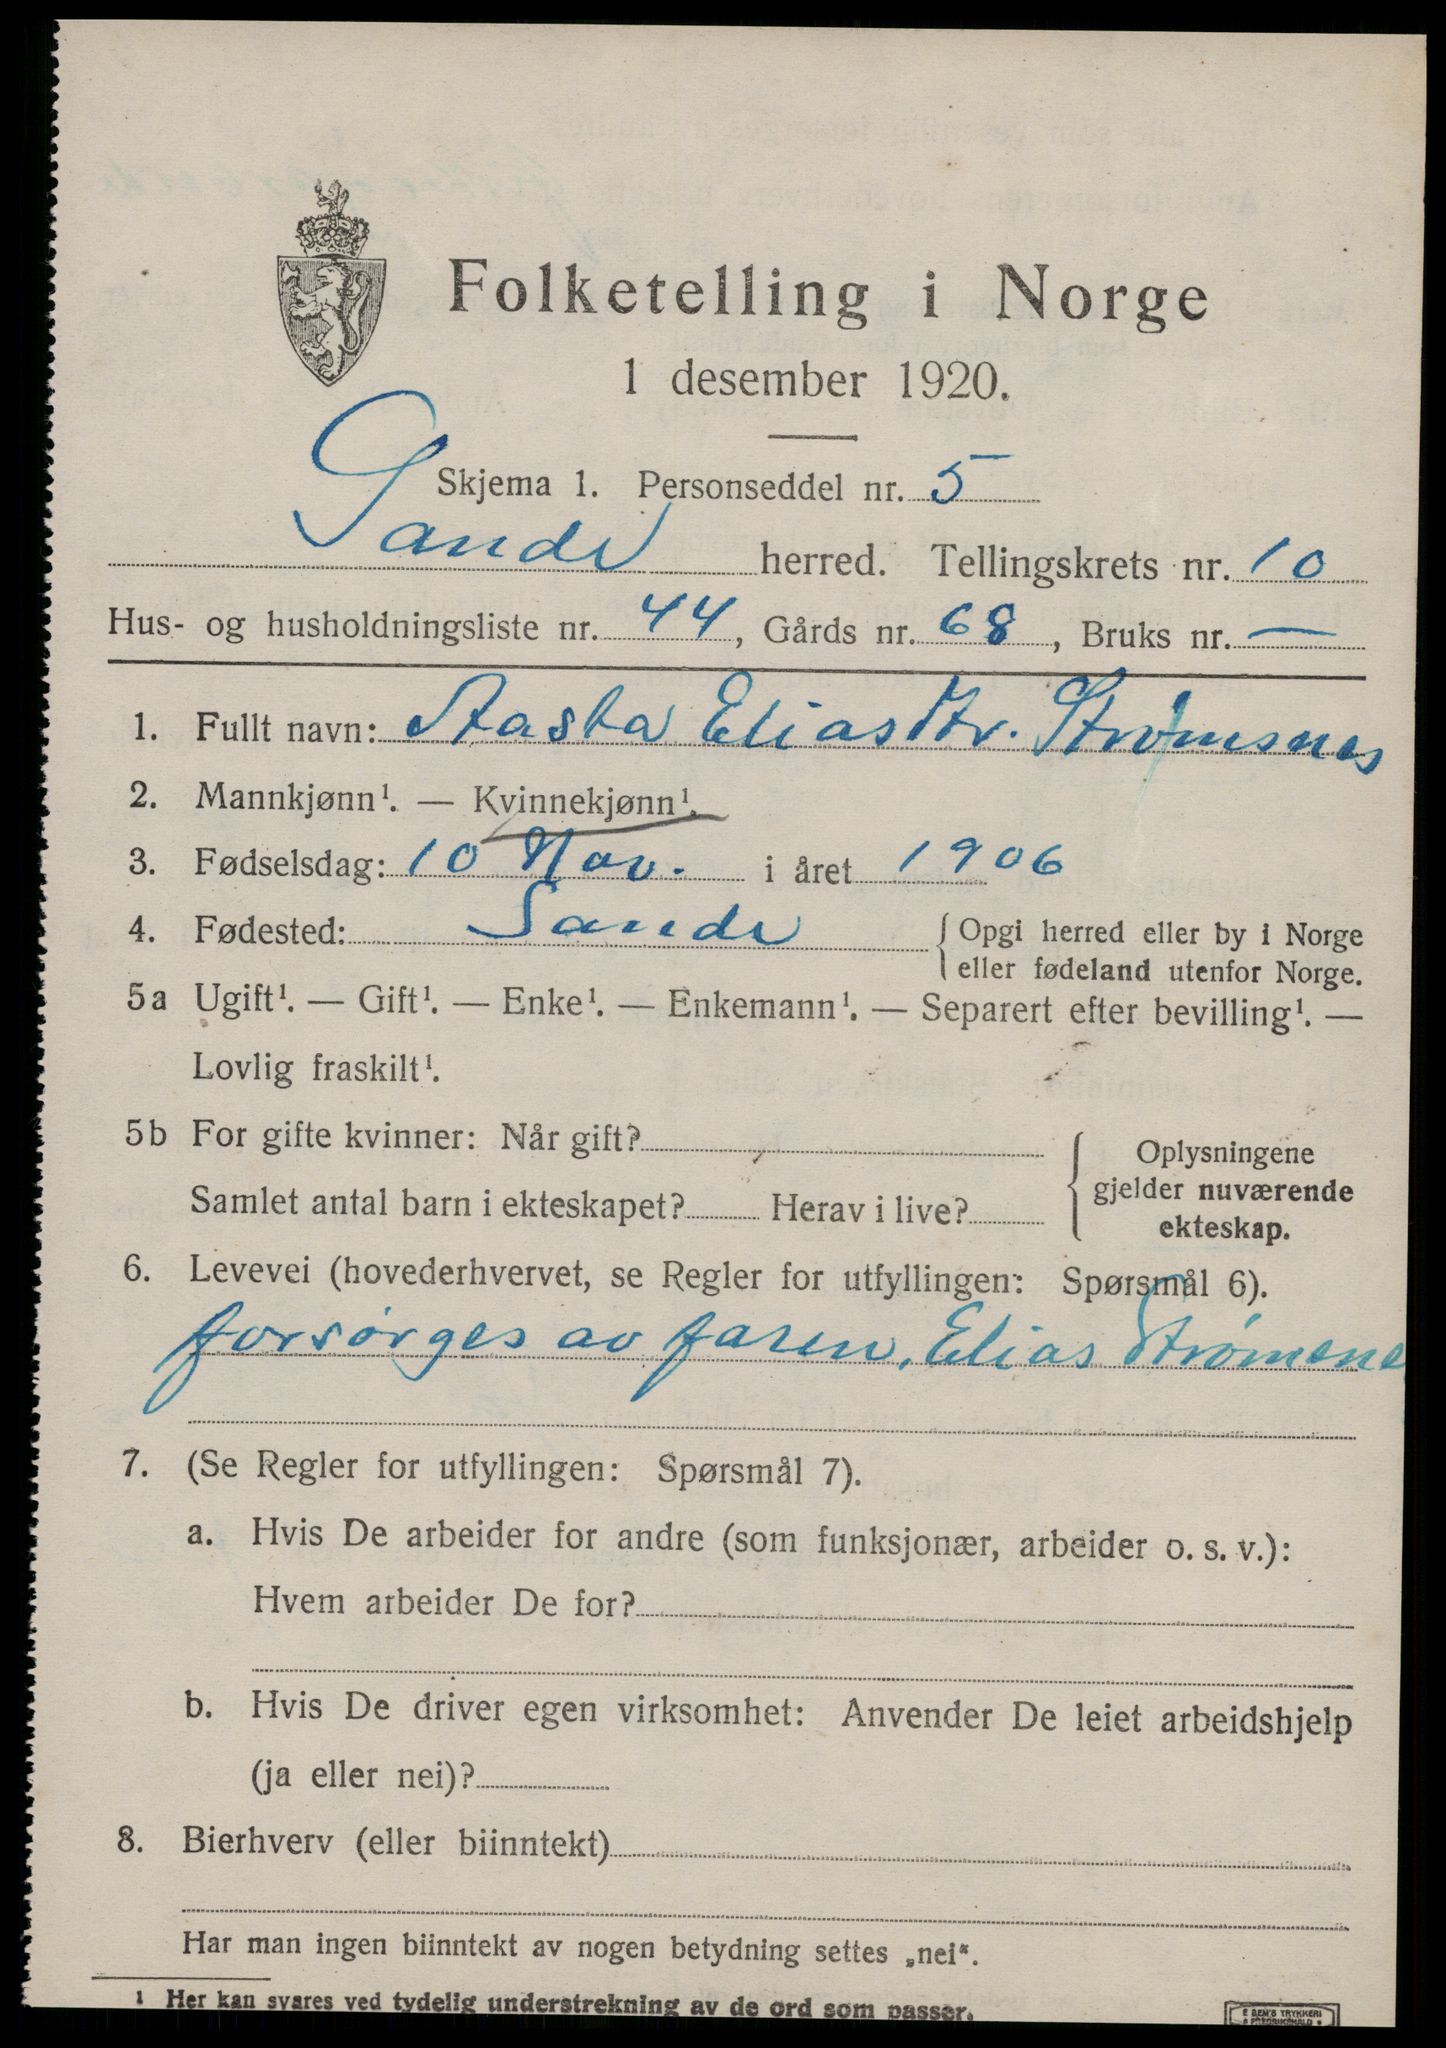 Folketelling i Norge
1 desember 1920.
Skjema 1. Personseddel nr. 5
Sande herred. Tellingskrets nr. 10
Hus- og husholdningsliste nr. 44, Gårds nr. 68, Bruks nr. —
1. Fullt navn: Aasta Eliasdtr. Strømsnes
2. Mannkjønn¹. — Kvinnekjønn¹.
3. Fødselsdag: 10 Nov. i året 1906
4. Fødested: Sande { Opgi herred eller by i Norge
eller fødeland utenfor Norge.
5a Ugift¹. — Gift¹. — Enke¹. — Enkemann¹. — Separert efter bevilling¹. —
Lovlig fraskilt¹.
5b For gifte kvinner: Når gift?
Samlet antal barn i ekteskapet? Herav i live?
{ Oplysningene
gjelder nuværende
ekteskap.
6. Levevei (hovederhvervet, se Regler for utfyllingen: Spørsmål 6).
forsørges av faren, Elias Strømsne
7. (Se Regler for utfyllingen: Spørsmål 7).
a. Hvis De arbeider for andre (som funksjonær, arbeider o. s. v.):
Hvem arbeider De for?
b. Hvis De driver egen virksomhet: Anvender De leiet arbeidshjelp
(ja eller nei)?
8. Bierhverv (eller biinntekt)
Har man ingen biinntekt av nogen betydning settes „nei“.
¹ Her kan svares ved tydelig understrekning av de ord som passer.
E SEM'S TRYKKERI
FREDRIKSHALD